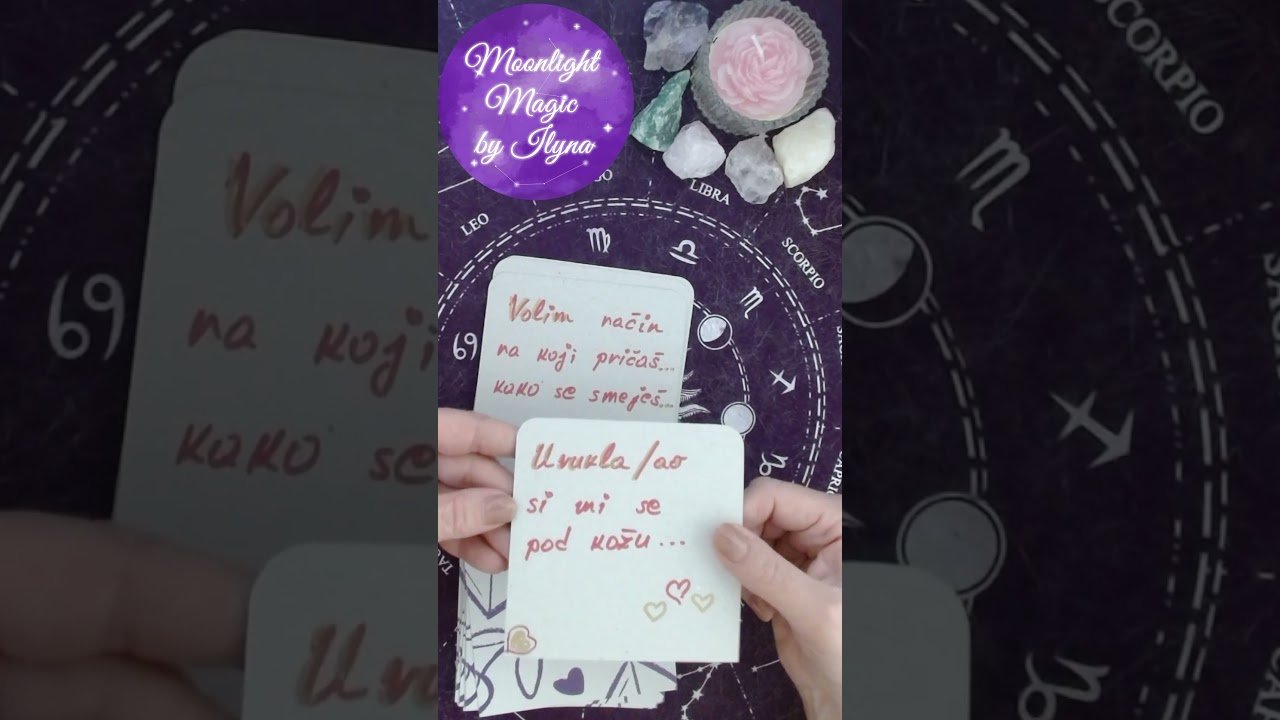 Moonlight
Magic
by Ilyna
LEO
LIBRA
SCORPIO
SCORPIO
Volim način
na koji pričaš...
kako se smeješ...
Uvukla/ao
si mi se
pod kožu...
Volim
na koji
kako se